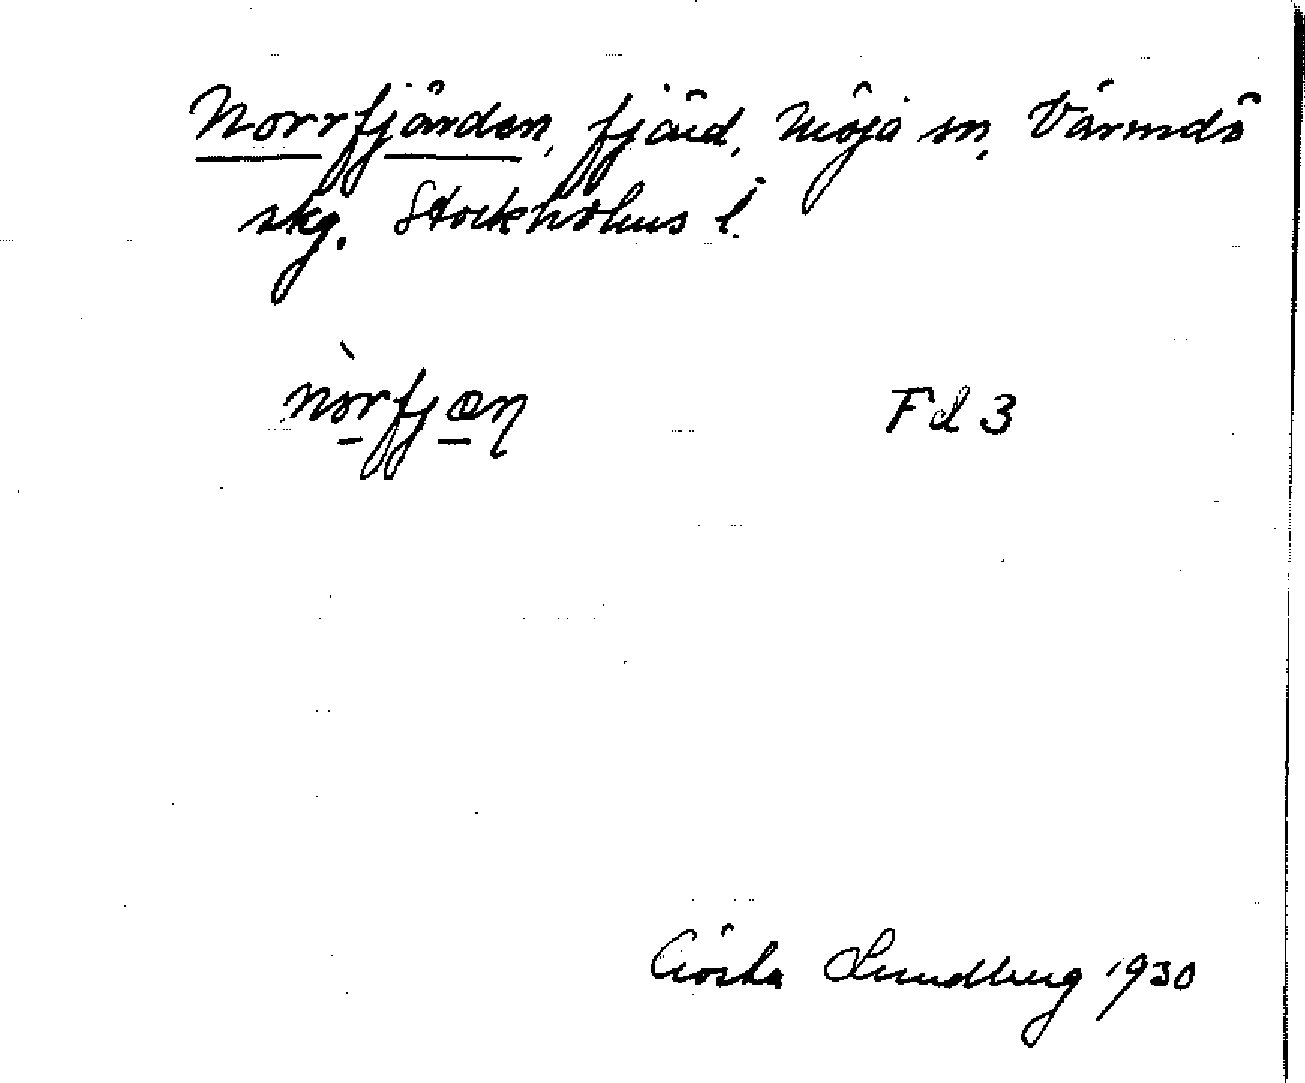 Norrfjärden, fjärd, Möja sn, Värmdö
skg. Stockholms l.
nòrfjæņ Fd 3
Gösta Lundberg 1930